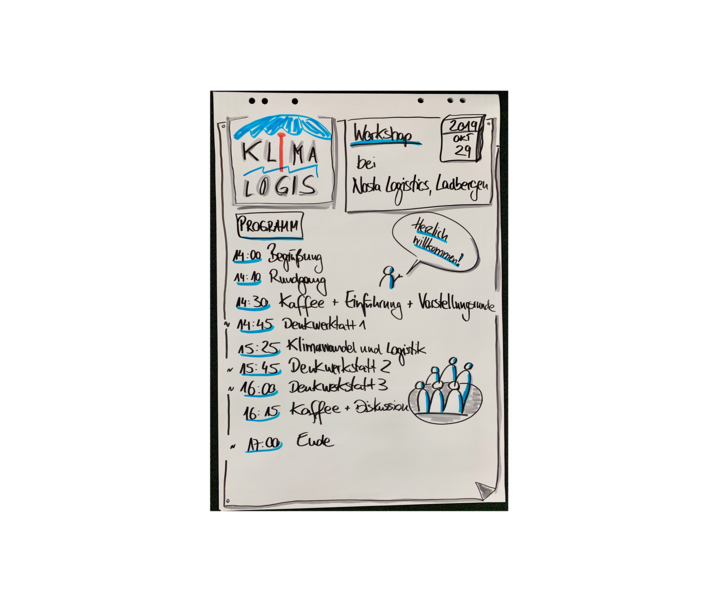 KLIMA
LOGIS
Workshop
bei
Nosta Logistics, Ladbergen
2019
OKT
29
PROGRAMM
Herzlich
willkommen!
14:00 Begrüßung
14:10 Rundgang
14:30 Kaffee + Einführung + Vorstellungsrunde
~ 14:45 Denkwerktatt 1
15:25 Klimawandel und Logistik
~ 15:45 Denkwerkstatt 2
~ 16:00 Denkwerkstatt 3
16:15 Kaffee + Diskussion
~ 17:00 Ende